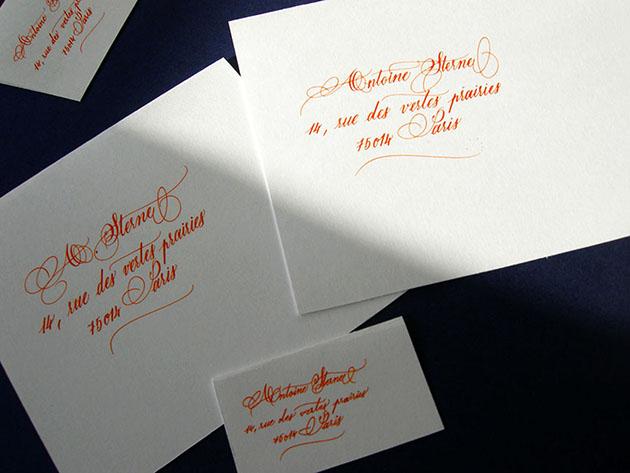 Antoine Sterne
14, rue des vertes prairies
75014 Paris
Antoine Sterne
14, rue des vertes prairies
75014 Paris
A. Sterne
14, rue des vertes prairies
75014 Paris
Antoine Sterne
14, rue des vertes prairies
75014 Paris